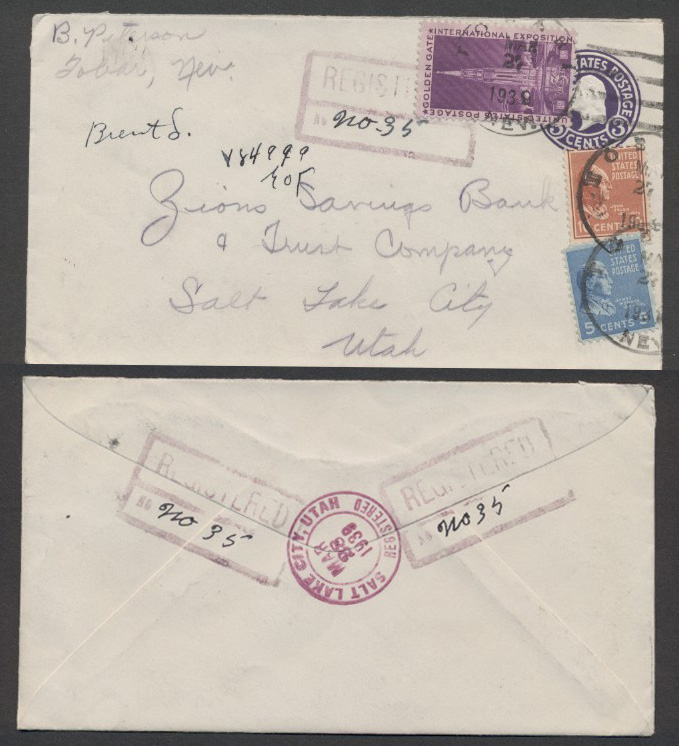 B. Peterson
Tobar, Nev.
Brent S.
REGISTE
No no-35
V84999
GOLDEN GATE INTERNATIONAL EXPOSITION
UNITED STATES POSTAGE
MAR
1939
NEV.
STATES POSTAGE
3 CENTS 3
UNITED
STATES
POSTAGE
10 CENTS
UNITED
STATES
POSTAGE
5 CENTS 5
NEV
Zions Savings Bank
& Trust Company
Salt Lake City
Utah
REGISTERED
No no 35
REGISTERED
No no 35
SALT LAKE CITY, UTAH
REGISTERED
MAR
28
1939